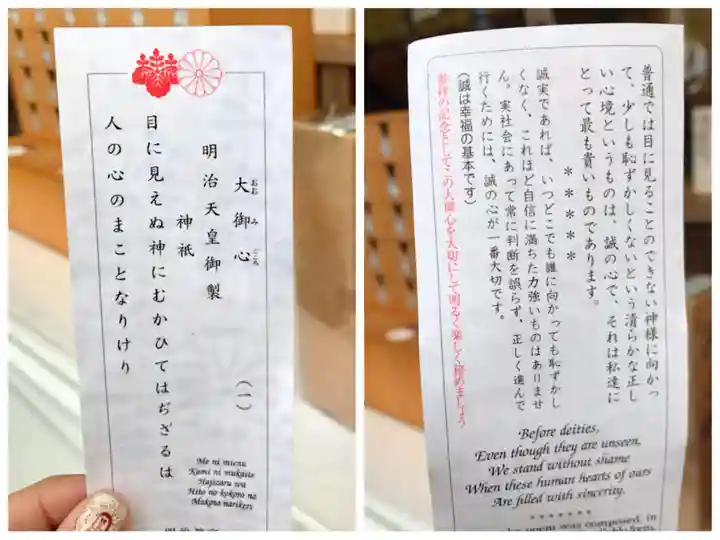 大御心
おおみごころ
(一)
明治天皇御製
神祇
目に見えぬ神にむかひてはぢざるは
人の心のまことなりけり
Me ni mienu
Kami ni mukaite
Hajizaru wa
Hito no kokoro no
Makoto narikeri
普通では目に見ることのできない神様に向かっ
て、少しも恥ずかしくないという清らかな正し
い心境というものは、誠の心で、それは私達に
とって最も貴いものであります。
*****
誠実であれば、いつどこでも誰に向かっても恥ずかし
くなく、これほど自信に満ちた力強いものはありませ
ん。実社会にあって常に判断を誤らず、正しく進んで
行くためには、誠の心が一番大切です。
(誠は幸福の基本です)
参拝の記念としてこの大御心を大切にして明るく楽しく務めましょう
Before deities,
Even though they are unseen,
We stand without shame
When these human hearts of ours
Are filled with sincerity.
*******
poem was composed in